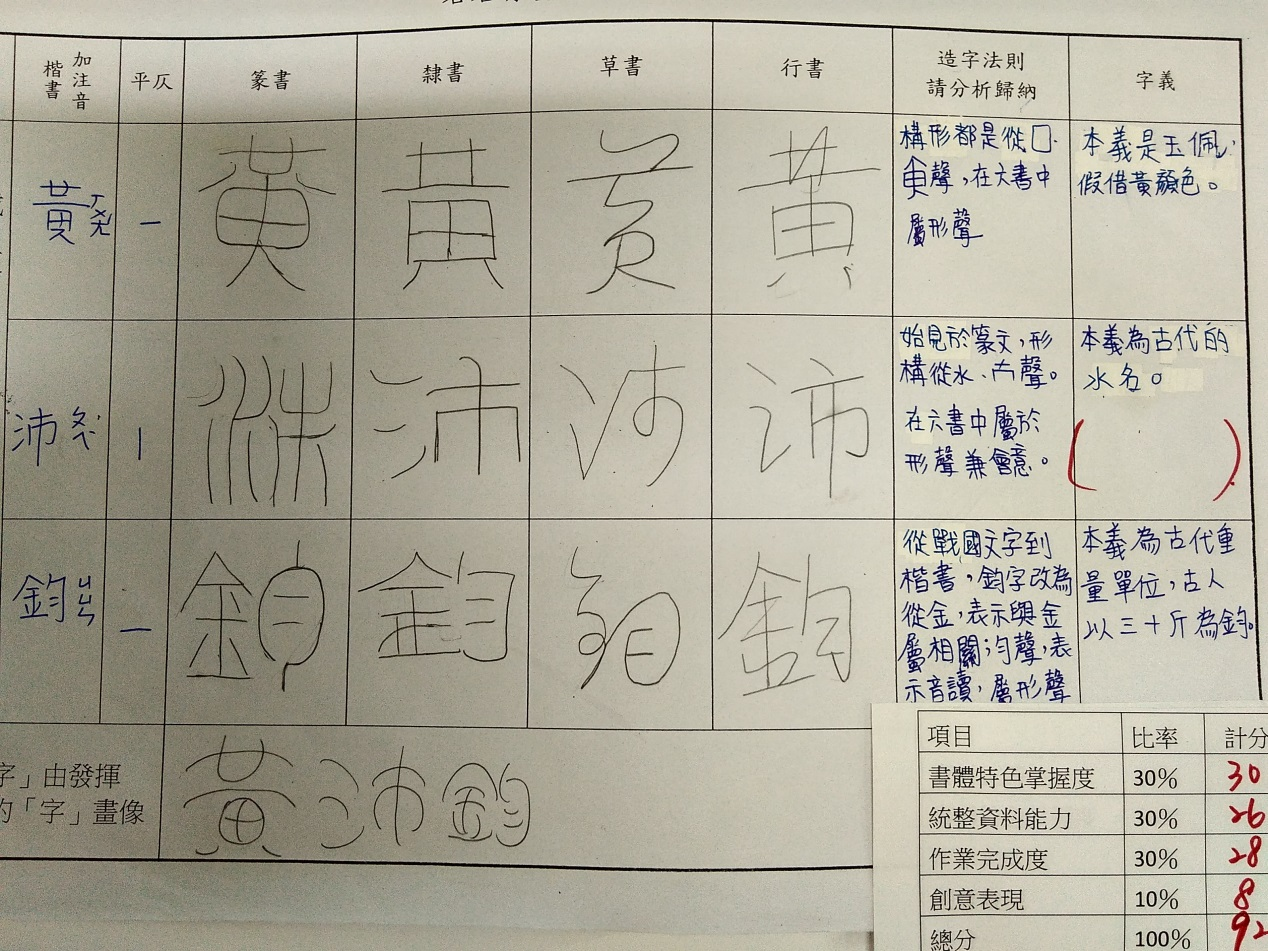 加注音
楷書
平仄
篆書
隸書
草書
行書
造字法則
請分析歸納
字義
黃 ㄏㄨㄤˊ
一
黃
黃
黃
黃
構形都是從囗、
聲,在六書中
屬形聲
本義是玉佩,
假借黃顏色。
沛 ㄆㄟˋ
|
沛
沛
沛
沛
始見於篆文,形
構從水、聲。
在六書中屬於
形聲兼會意。
本義為古代的
水名。
( )
鈞 ㄐㄩㄣ
一
鈞
鈞
鈞
鈞
從戰國文字到
楷書,鈞字改為
從金,表示與金
屬相關;勻聲,表
示音讀,屬形聲
本義為古代重
量單位,古人
以三十斤為鈞。
字」由發揮
的「字」畫像
黃沛鈞
項目 比率 計分
書體特色掌握度 30% 30
統整資料能力 30% 26
作業完成度 30% 28
創意表現 10% 8
總分 100% 92